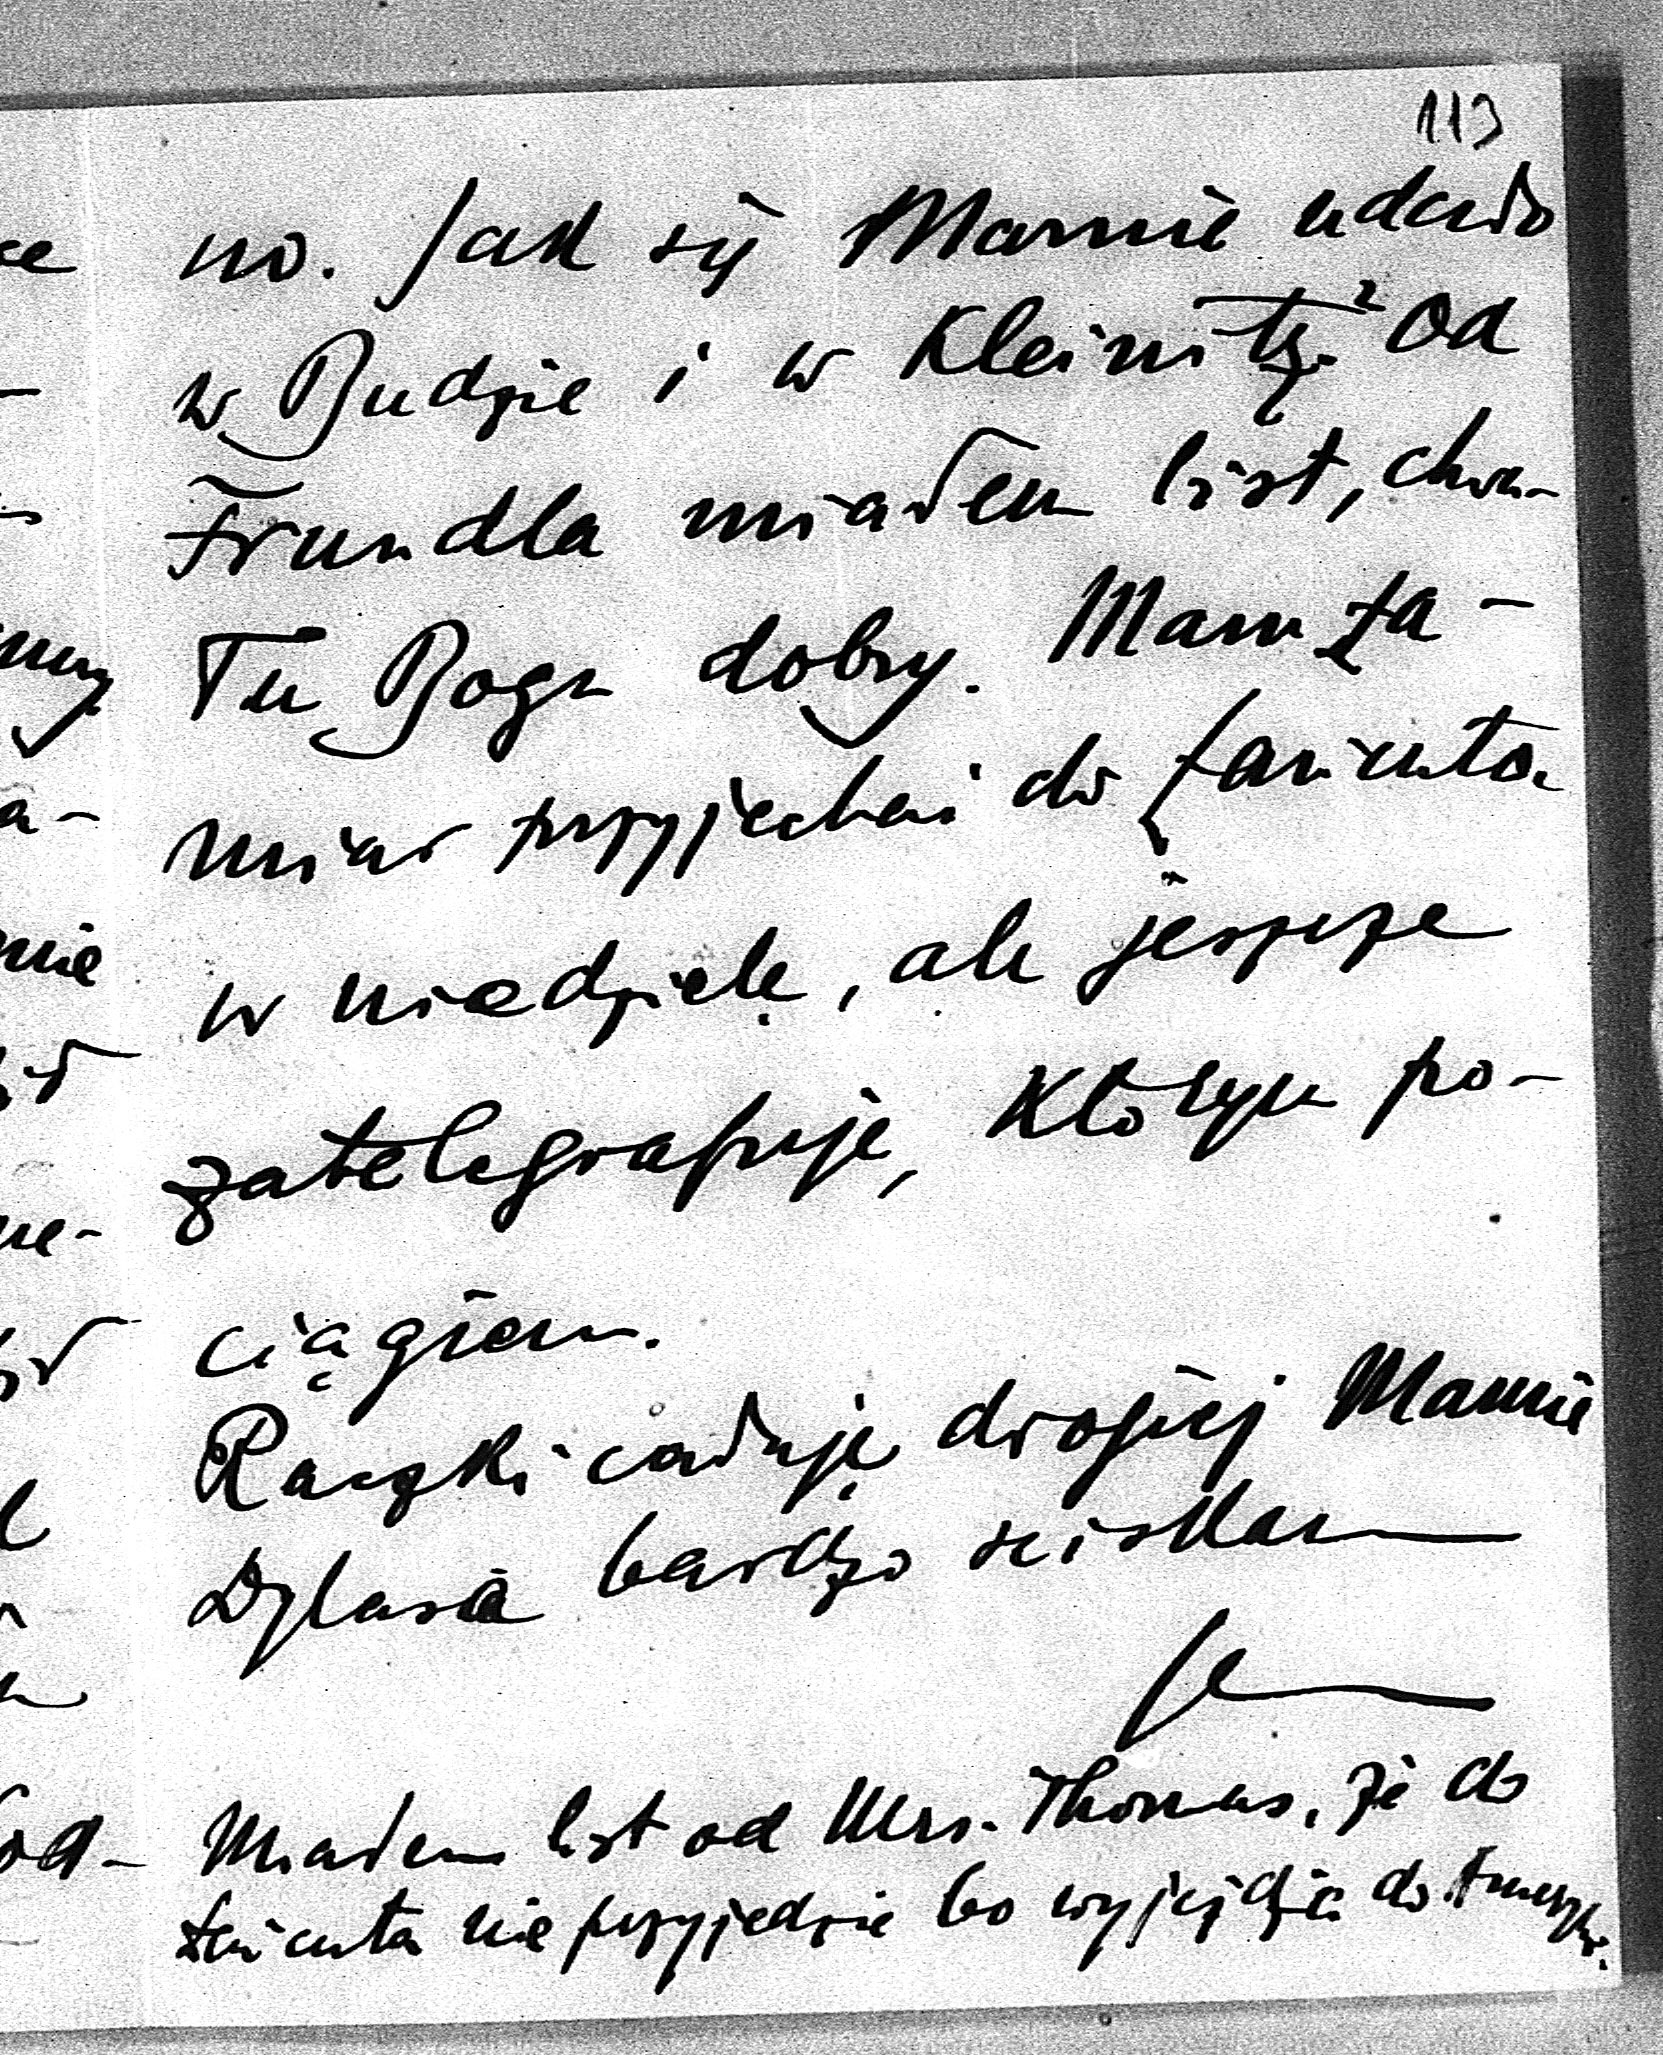 113
no. Jak się Mamie udało
w Budzie i w Kleinitz? Od
Frundla miałem list, chwa-
Tu Bogu dobry. Mam za-
miar przyjechać do Łańcuta
w niedzielę, ale jeszcze
zatelegrafuję, którym po-
ciągiem.
Rączki całuję drogiej Mamie
Dylasia bardzo ściskam
Miałem list od Mrs. Thomas, że do
Łańcuta nie przyjedzie bo wyjeżdża do Ameryki.